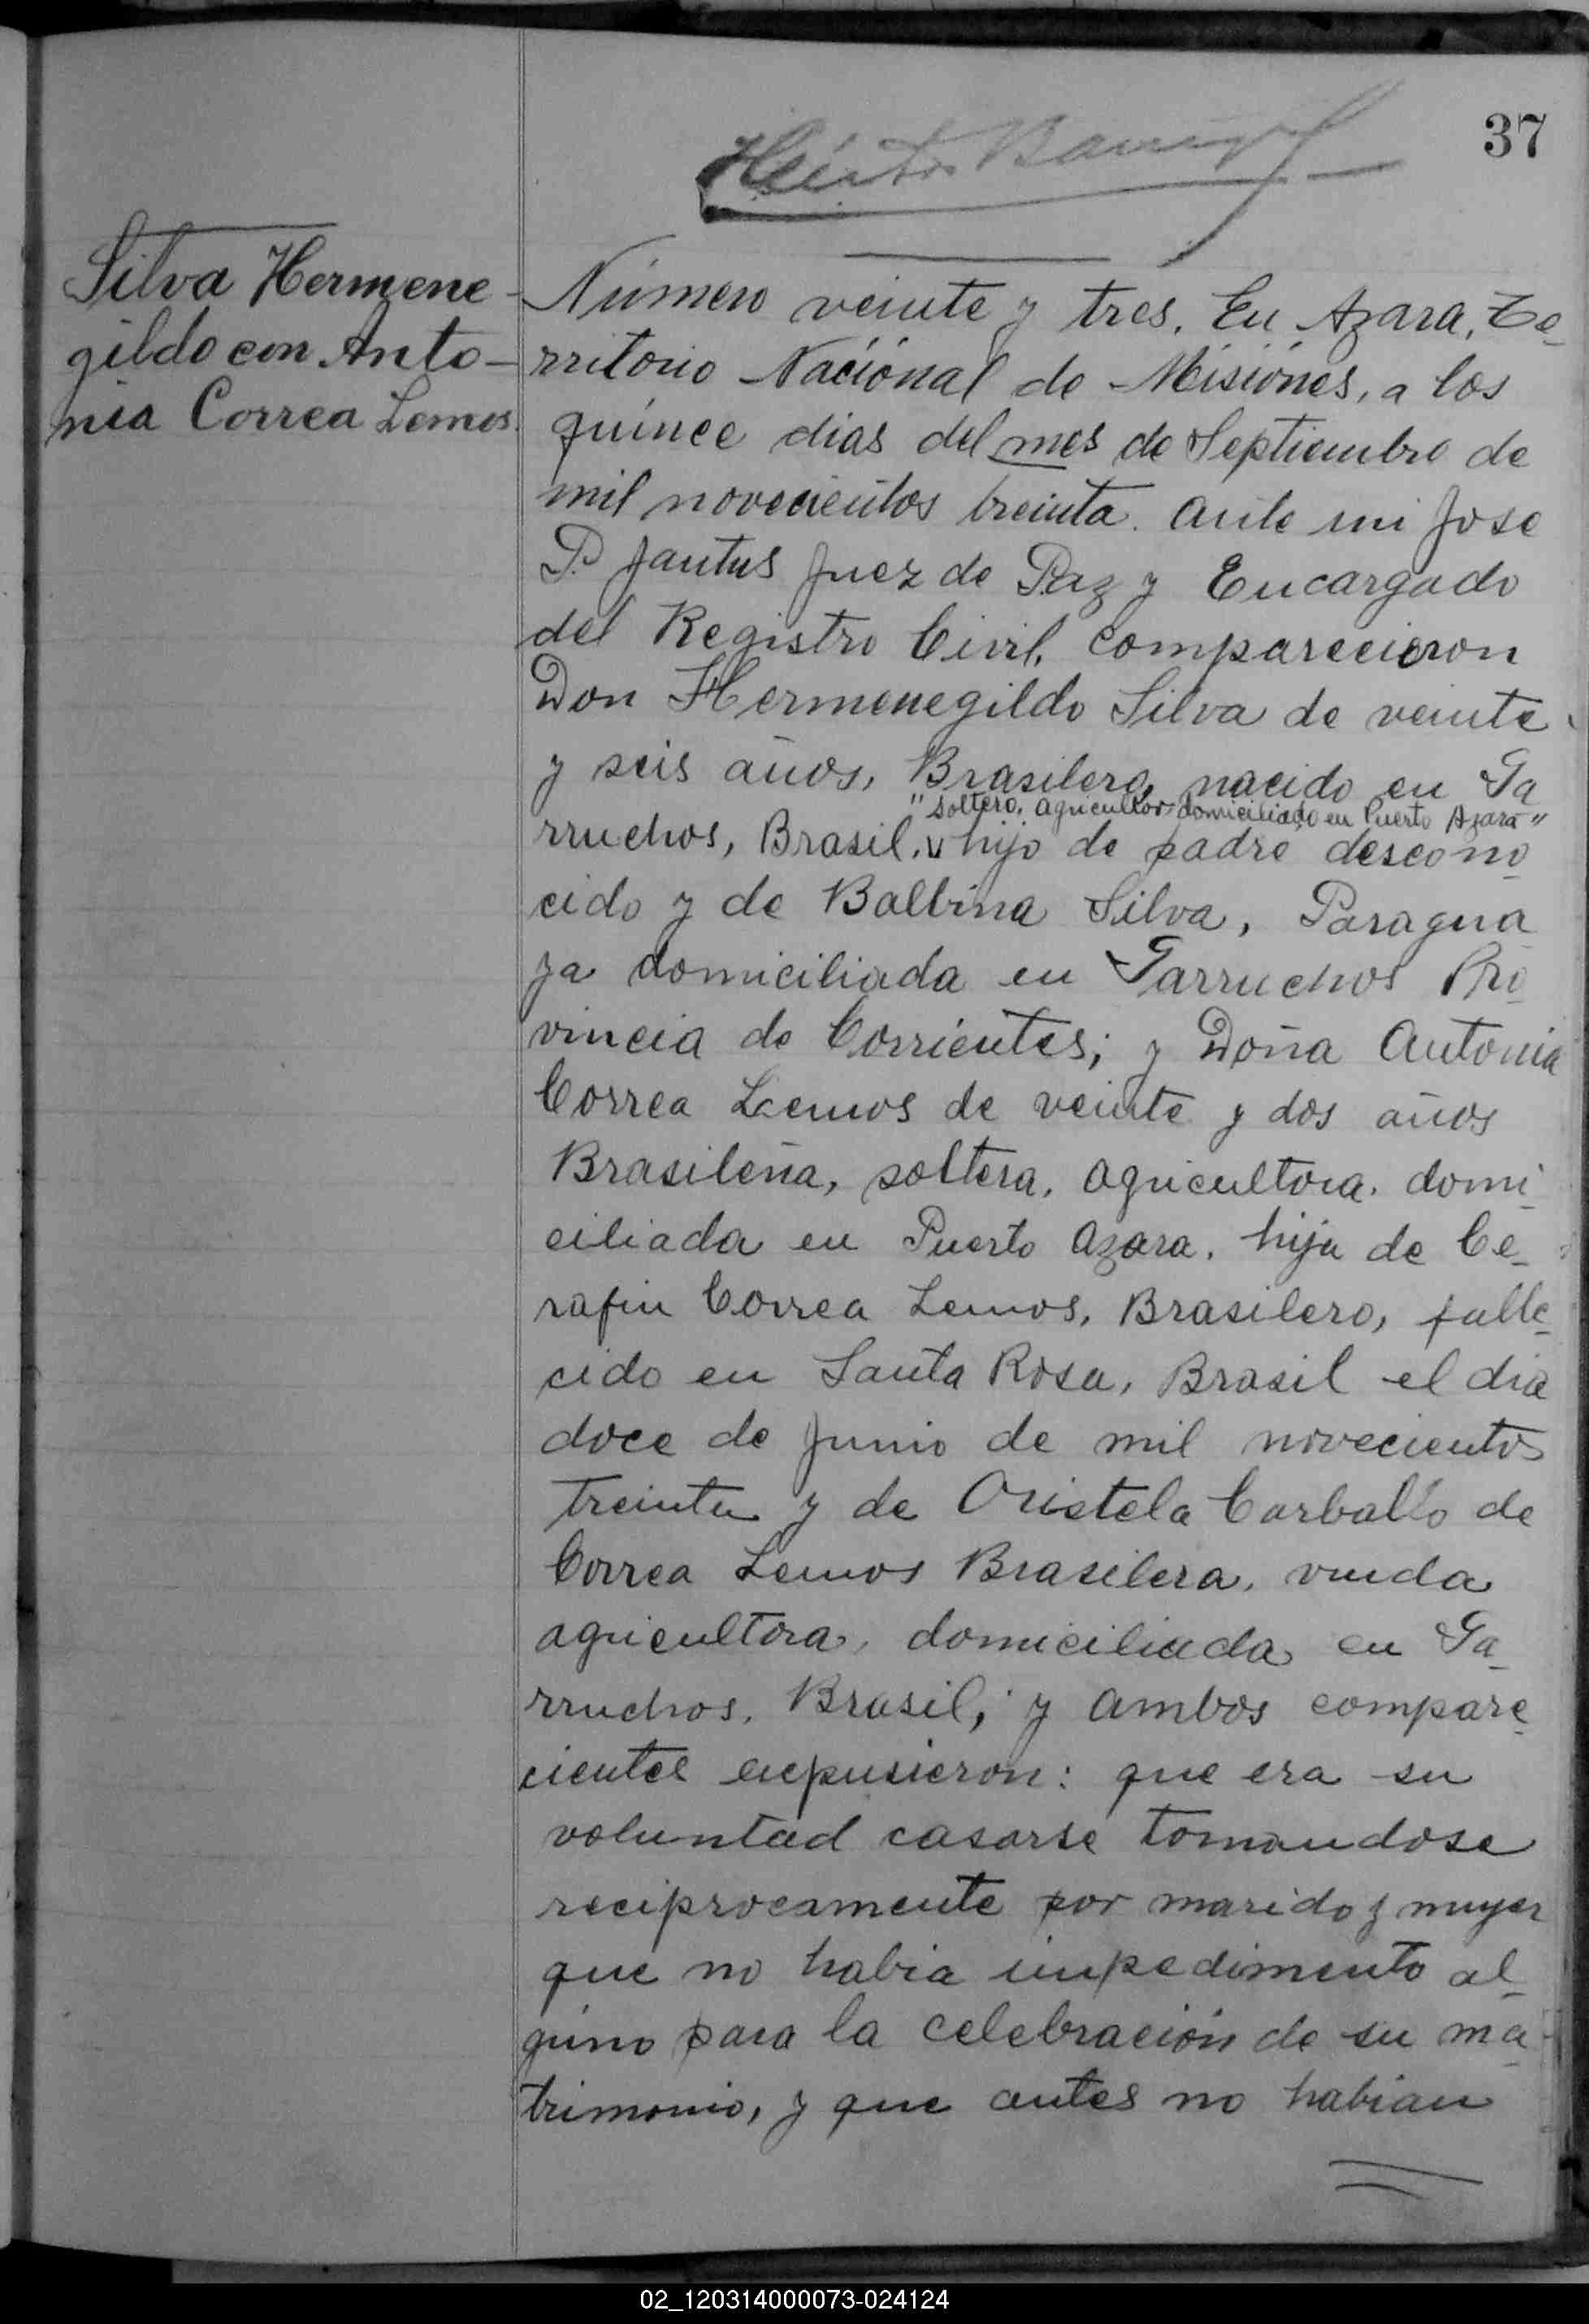 37
Héctor
Silva Hermene-
gildo con Anto-
nia Correa Lemos.
Número veinte y tres. En Azara, Te-
rritorio Nacional de Misiones, a los
quince dias del mes de Septiembre de
mil novecientos treinta. Ante mi Jose
P. Jantus Juez de Paz y Encargado
del Registro Civil, comparecieron
Don Hermenegildo Silva de veinte
y seis años, Brasilero, nacido en Ga
"soltero, agricultor, domiciliado en Puerto Azara"
rruchos, Brasil, hijo de padre descono
cido y de Balbina Silva, Paragua
ya domiciliada en Garruchos Pro
vincia de Corrientes; y Doña Antonia
Correa Lemos de veinte y dos años
Brasileña, soltera, agricultora, domi
ciliada en Puerto Azara, hija de Ce-
rafin Correa Lemos, Brasilero, falle
cido en Santa Rosa, Brasil el dia
doce de Junio de mil novecientos
treinta y de Oristela Carballo de
Correa Lemos Brasilera, viuda
agricultora, domiciliada en Ga
rruchos, Brasil; y ambos compare
cientes expusieron: que era su
voluntad casarse tomandose
reciprocamente por marido y muger
que no habia impedimento al
guno para la celebración de su ma
trimonio, y que antes no habian
02_120314000073-024124